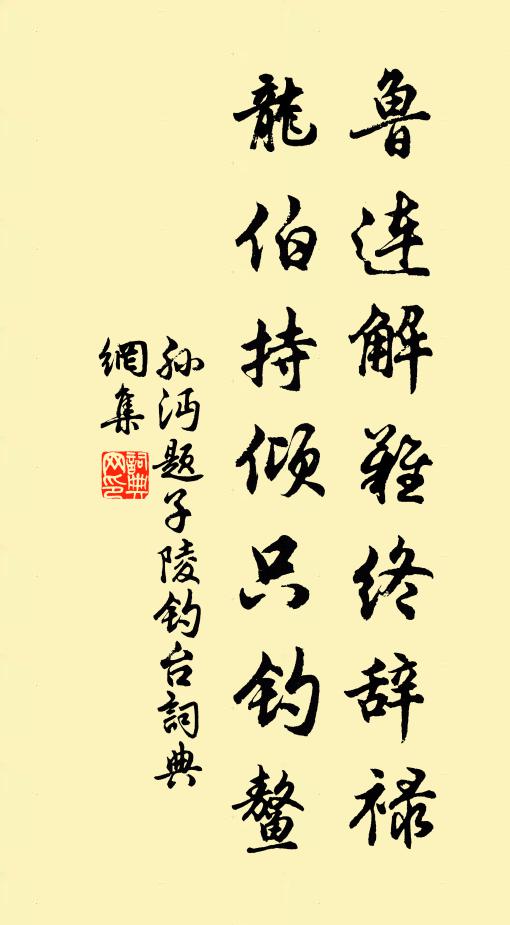 鲁连解难终辞禄
龍伯持倾只钓鳌
孙沔题子陵钓台詞典
網集
詞典
网印